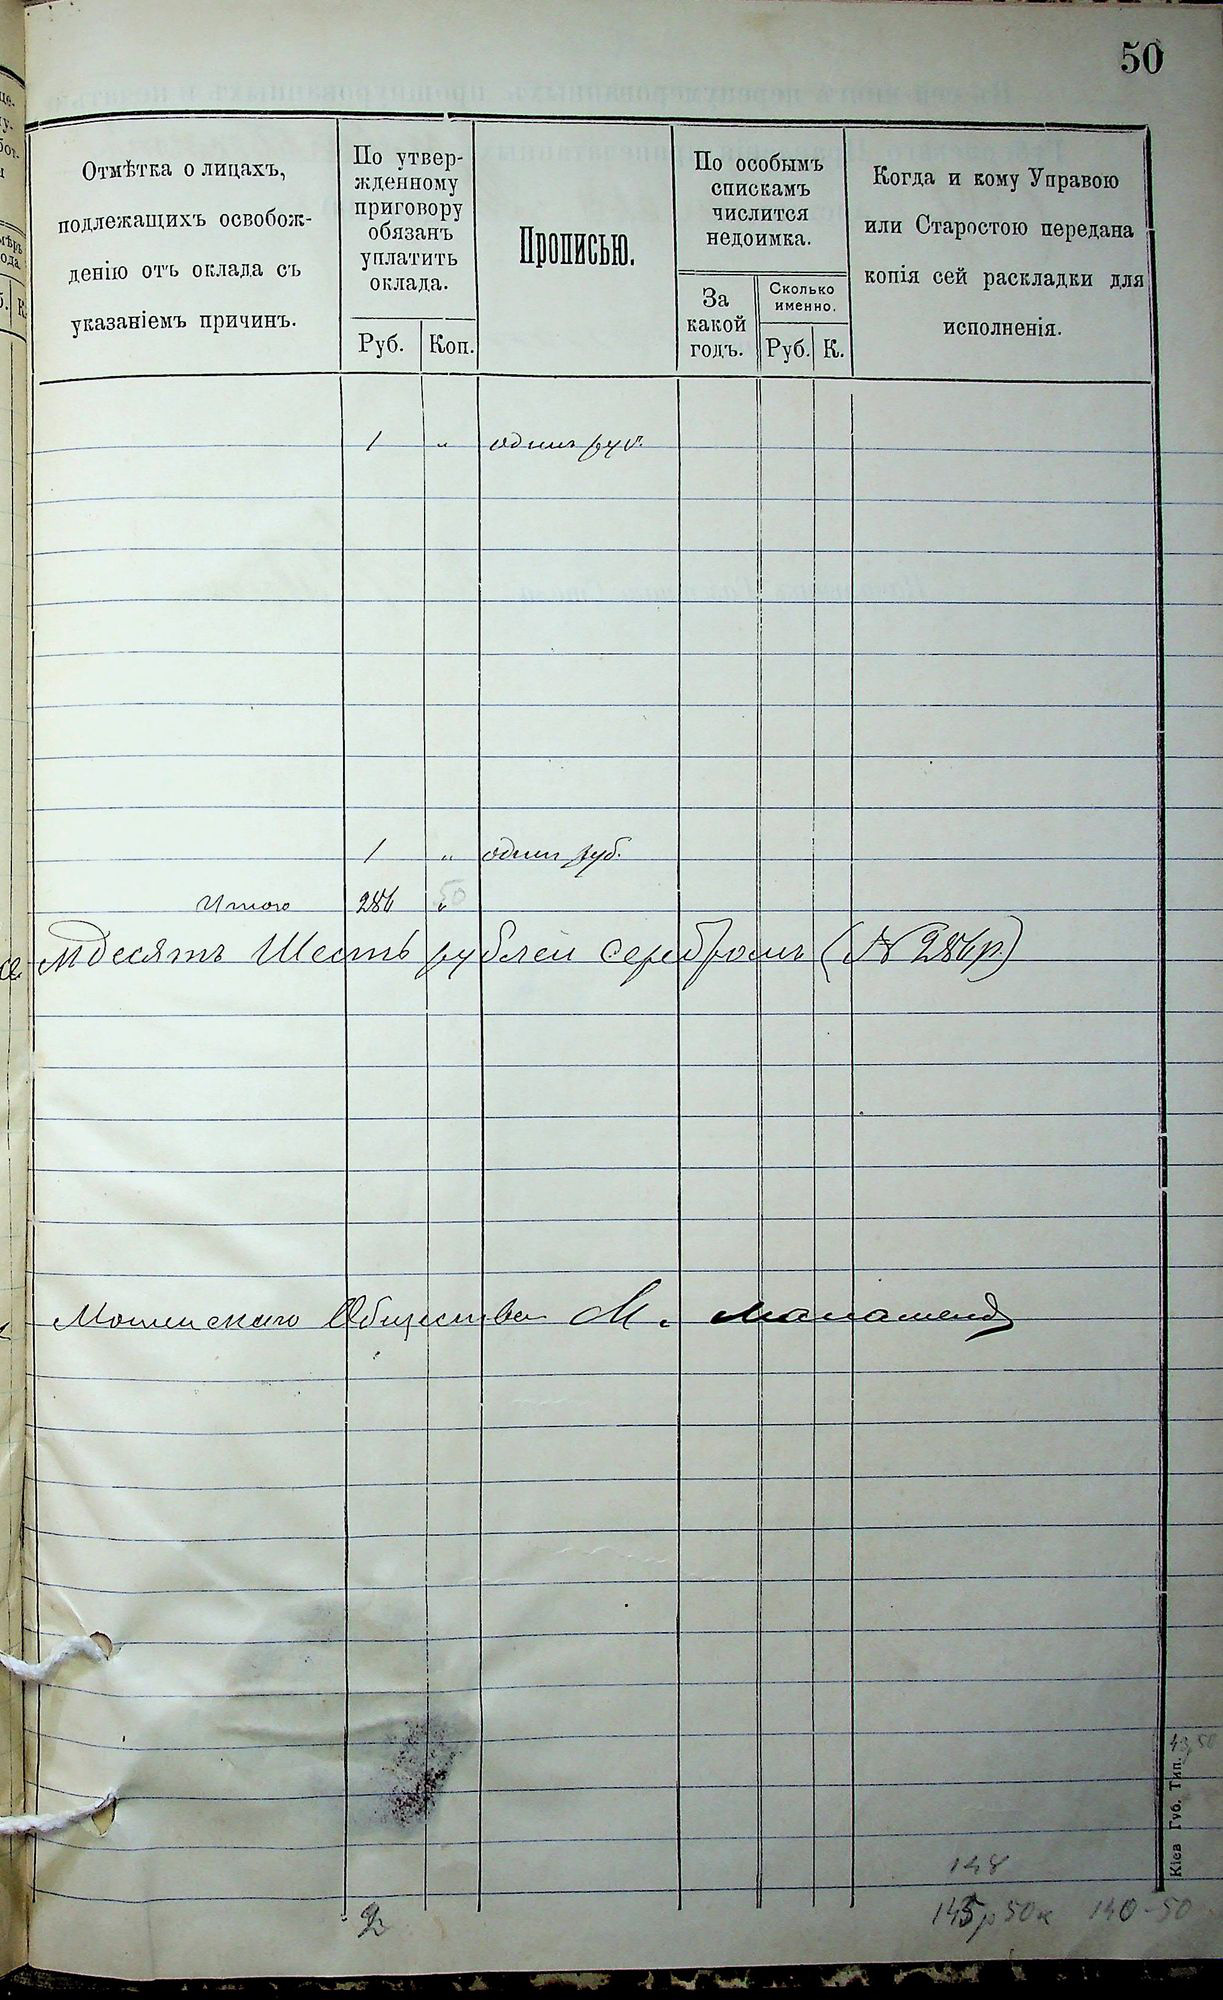 50
Отмѣтка о лицахъ,
подлежащихъ освобож-
денію отъ оклада съ
указаніемъ причинъ.
По утвер-
жденному
приговору
обязанъ
уплатить
оклада.
Руб. Коп.
Прописью.
По особымъ
спискамъ
числится
недоимка.
За
какой
годъ.
Сколько
именно.
Руб. К.
Когда и кому Управою
или Старостою передана
копія сей раскладки для
исполненія.
1 " одинъ руб.
1 " один руб.
Итого 286 " 50
мдесятъ Шесть рублей серебромъ (№ 286 р.)
Общества М.
43,50
Кіев Губ. Тип.
148
145 р 50 к 140-50